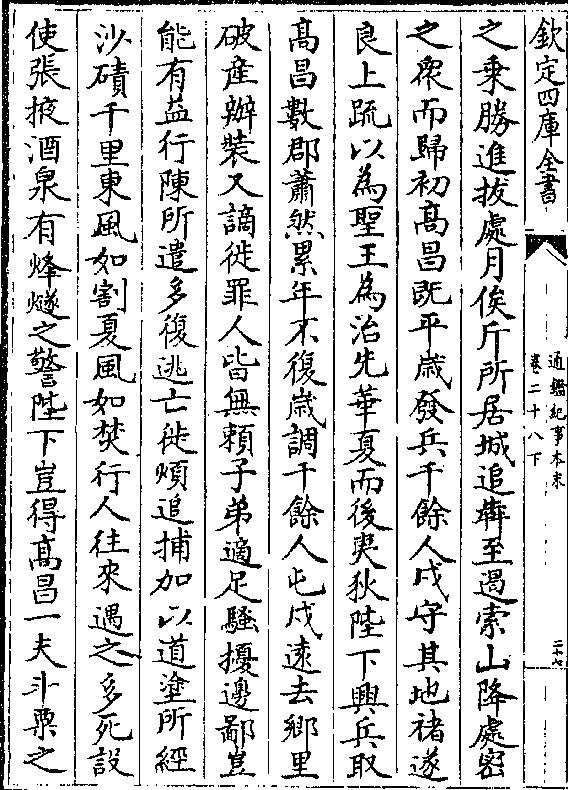 欽定四庫全書
通鑑紀事本末
卷二十八下
二十七
之乗勝進拔處月俟斤所居城追犇至遏索山降處宻
之衆而歸初髙昌既平歳發兵千餘人戍守其地禇遂
良上䟽以為聖王為治先華夏而後夷狄陛下興兵取
髙昌數郡蕭然累年不復歳調千餘人屯戍逺去鄉里
破産辦裝又謫徙罪人皆無頼子弟適足騷擾邊鄙豈
能有益行陳所遣多復逃亡徙煩追捕加以道塗所經
沙磧千里東風如割夏風如焚行人往來遇之多死設
使張掖酒泉有烽燧之警陛下豈得髙昌一夫斗粟之